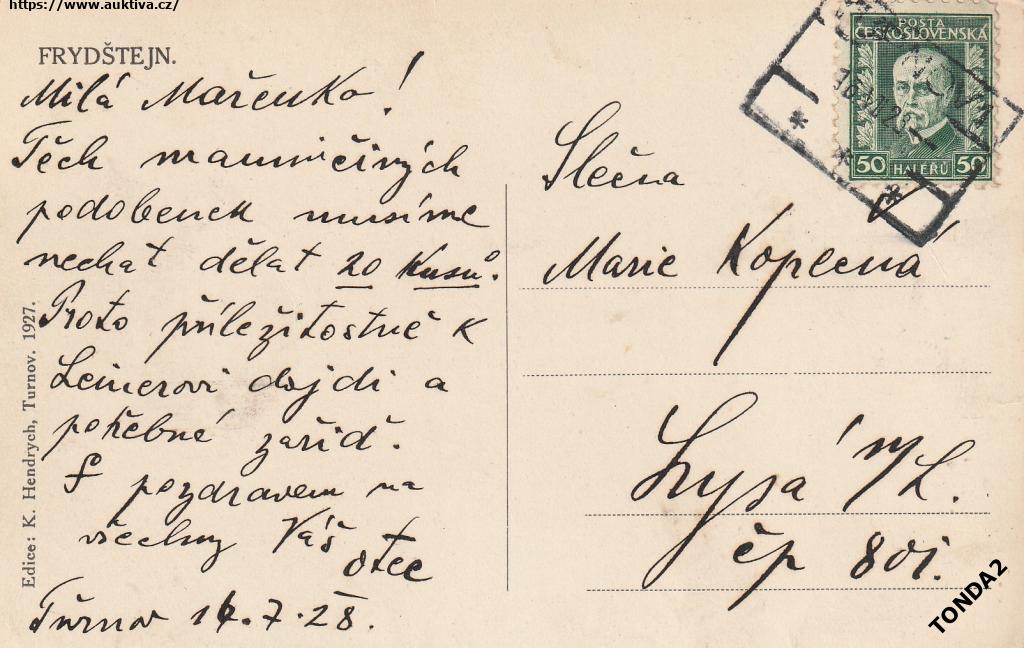 https://www.auktiva.cz/
FRYDŠTEJN.
Milá Mařenko!
Těch
podobenek musíme
nechat dělat 20 kusů.
Proto příležitostně k
Leinerovi dojdi a
potřebné zařiď.
S pozdravem na
všechny Váš
otec
Turnov .7.28.
Edice: K. Hendrych, Turnov. 1927.
POŠTA
ČESKOSLOVENSKÁ
50 HALÉŘŮ 50
Slečna
Marie Kopecná
Lysá n/L.
čp 801.
TONDA2